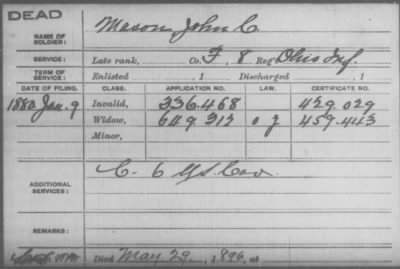 DEAD
NAME OF SOLDIER: Mason, John C.
SERVICE: Late rank, Co. F, 8 Reg't Ohio Inf.
TERM OF SERVICE: Enlisted , 1 Discharged , 1
DATE OF FILING. CLASS. APPLICATION NO. LAW. CERTIFICATE NO.
1880 Jan. 9 Invalid, 336.468 429.029
Widow, 649.312 459.443
Minor,
ADDITIONAL SERVICES: C. 6 U.S. Cav.
REMARKS:
Died May 29, 1896, at